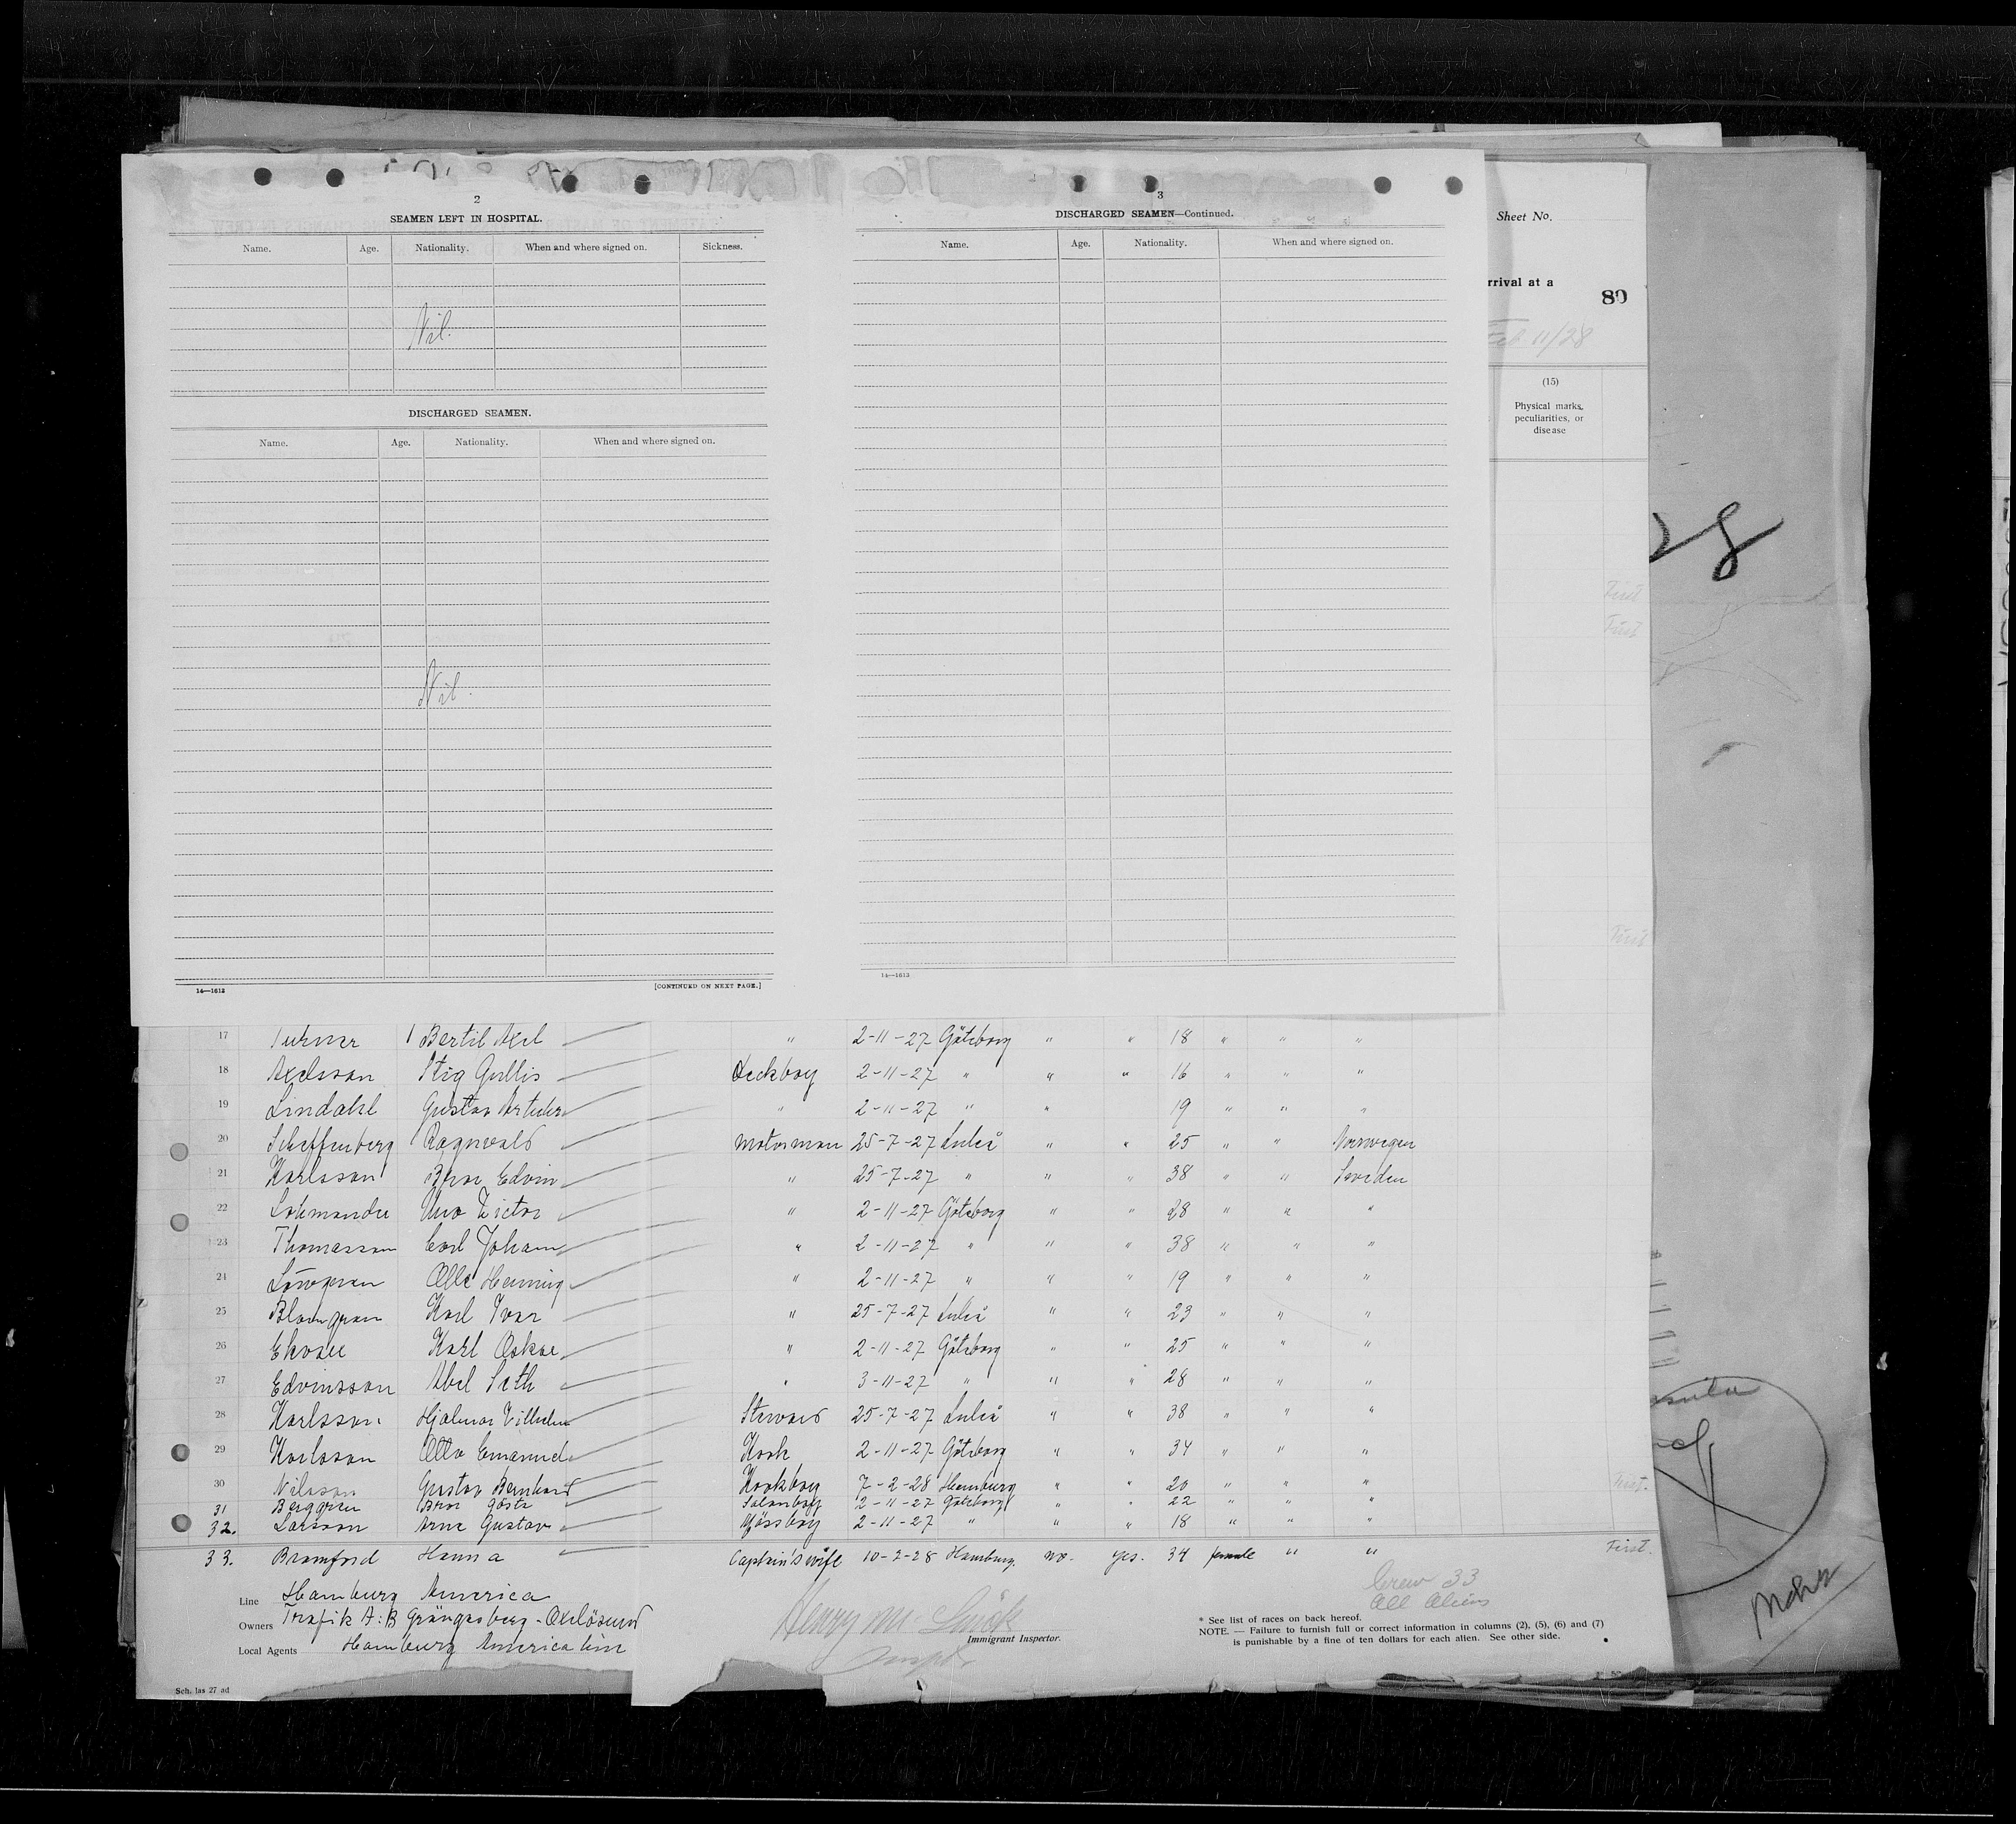 2
SEAMEN LEFT IN HOSPITAL.
Name. Age. Nationality. When and where signed on. Sickness.
Nil.
DISCHARGED SEAMEN.
Name. Age. Nationality. When and where signed on.
Nil.
14—1612 [CONTINUED ON NEXT PAGE.]
3
DISCHARGED SEAMEN—Continued.
Name. Age. Nationality. When and where signed on.
14—1612
Sheet No.
rrival at a
80
Feb 11/28
(15)
Physical marks,
peculiarities, or
disease
First
First
First
28
17 Turner Bertil Axel " 2-11-27 Göteborg " " 18 " " "
18 Axelsson Stig Gullis Deckboy 2-11-27 " " " 16 " " "
19 Lindahl Gustav Artuhr " 2-11-27 " " 19 " " "
20 Scheffenberg Ragnvald Motorman 25-7-27 Luleå " " 25 " " Norwegen
21 Karlsson Edvin " 25-7-27 " " " 38 " " Sweden
22 Uno Victor " 2-11-27 Göteborg " " 28 " " "
23 Thomasson Carl Johann " 2-11-27 " " " 38 " " "
24 Lövgren Olle Henning " 2-11-27 " " " 19 " " "
25 Blomgren Karl Ivar " 25-7-27 Luleå " " 23 " " "
26 Karl Oskar " 2-11-27 Göteborg " " 25 " " "
27 Edvinsson Abel Seth " 3-11-27 " " " 28 " " "
28 Karlsson Hjalmar Vilhelm Steward 25-7-27 Luleå " " 38 " " "
29 Karlsson Otto Emanuel Kock 2-11-27 Göteborg " " 34 " " "
30 Nilsson Gustav Bernhard Kockboy 7-2-28 Hamburg " " 20 " " " First.
31 Berggren Gösta Salonboy 2-11-27 Göteborg " " 22 " " "
32. Larsson Arne Gustav Mässboy 2-11-27 " " " 18 " " "
33. Bramford Hanna Captain's wife 10-2-28 Hamburg. no. yes. 34 female " " First.
Line Hamburg America
Owners Trafik A:B Grängesberg - Oxelösund
Local Agents Hamburg America Line
Henry M.
Immigrant Inspector.
Crew 33
All Aliens
* See list of races on back hereof.
NOTE. — Failure to furnish full or correct information in columns (2), (5), (6) and (7)
is punishable by a fine of ten dollars for each alien. See other side.
Sch. las 27 ad